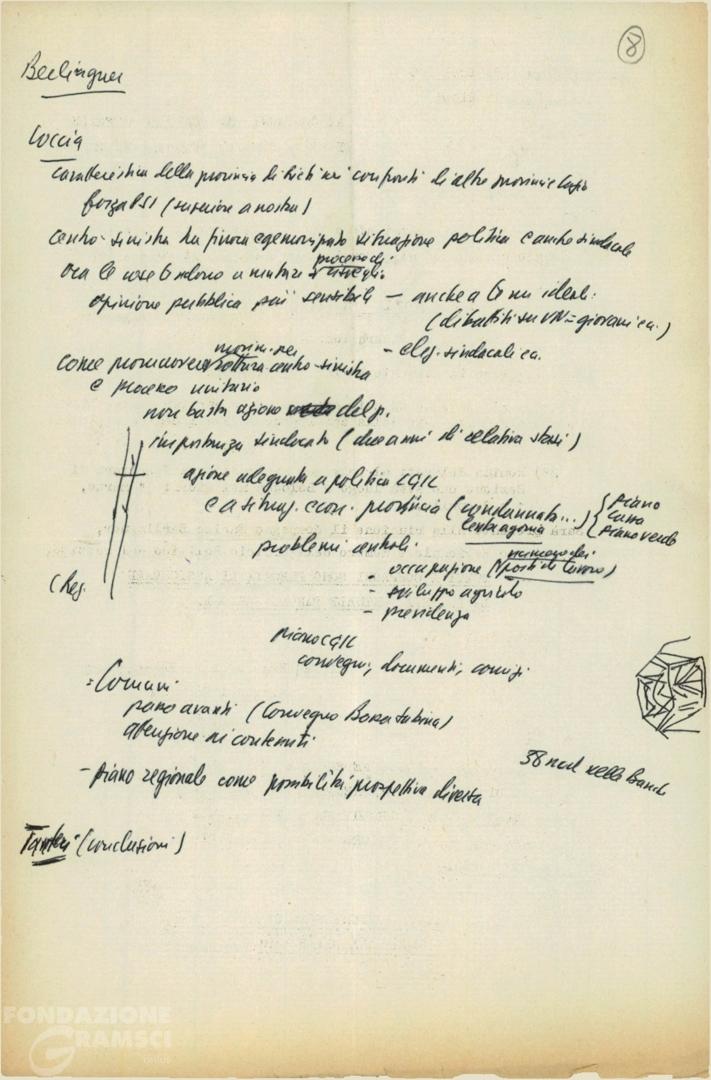 8
Berlinguer
Coccia
caratteristica della provincia di Rieti nei confronti di altre provincie Lazio
forza PSI (superiore a nostra)
centro-sinistra ha finora egemonizzato situazione politica e anche sindacale
processo di
ora le cose tendono a mutare risveglio
opinione pubblica più sensibile — anche a temi ideali
(dibattiti su VN = giovani ca.)
– elez. sindacali ca.
come promuovere rottura centro-sinistra
e processo unitario
non basta azione del p.
importanza sindacato (due anni di relativa stasi)
azione adeguata a politica CGIL
e a situaz. econ. provincia (condannata...)
lenta agonia
piano
Cassa
Piano verde
problemi centrali
- occupazione (posti di lavoro)
- sviluppo agricolo
- previdenza
(Reg.
piano CGIL
convegni, documenti, comizi
= Comuni
passo avanti (Convegno Bassa Sabina)
attenzione ai contenuti
– piano regionale come possibilità prospettiva diversa
38
(conclusioni)
FONDAZIONE
GRAMSCI
onlus